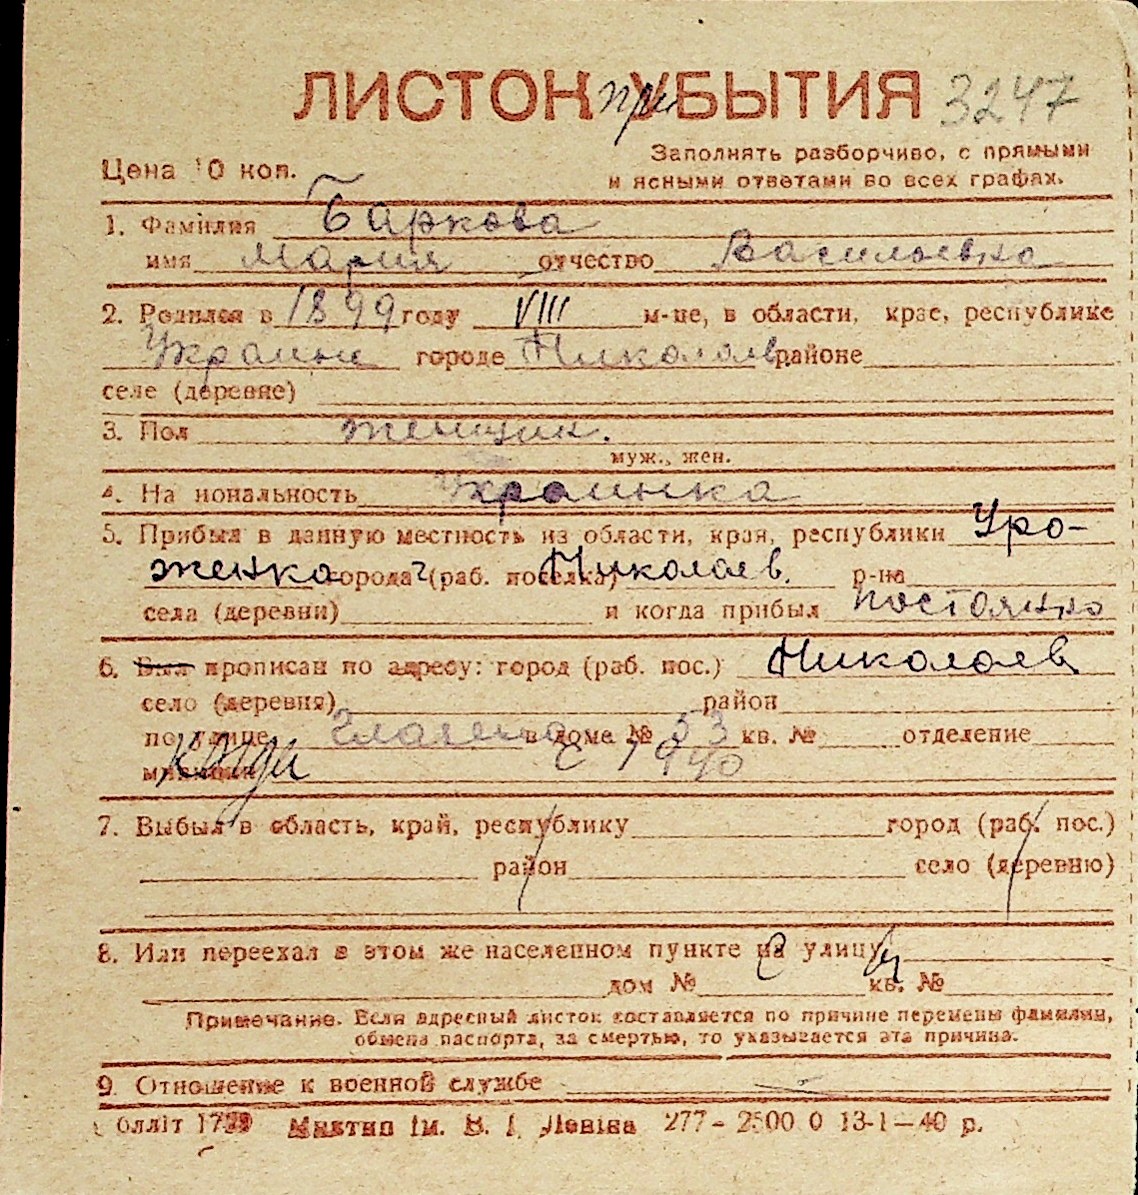 ЛИСТОК при УБЫТИЯ 3247
Цена 10 коп.
Заполнять разборчиво, с прямыми
и ясными ответами во всех графах.
1. Фамилия Баркова
имя Мария отчество Васильевна
2. Родился в 1899 году VIII м-це, в области, крае, республике
Украине городе Николаев районе
селе (деревне)
3. Пол женщин.
муж., жен.
4. На иональность Украинка
5. Прибыл в данную местность из области, края, республики Уро-
женка города (раб. поселка) г Николаев. р-на
села (деревни) и когда прибыл постоянно
6. Был прописан по адресу: город (раб. пос.) Николаев
село (деревня) район
по улице в доме № 53 кв. № отделение
милиции когда с 1940
7. Выбыл в область, край, республику город (раб. пос.)
район село (деревню)
8. Или переехал в этом же населенном пункте на улицу
дом № кв. №
Примечание. Если адресный листок составляется по причине перемены фамилии,
обмена паспорта, за смертью, то указывается эта причина.
9. Отношение к военной службе
олліт Миктип ім. В. І. Леніна 277–2500 0 13-1–40 р.